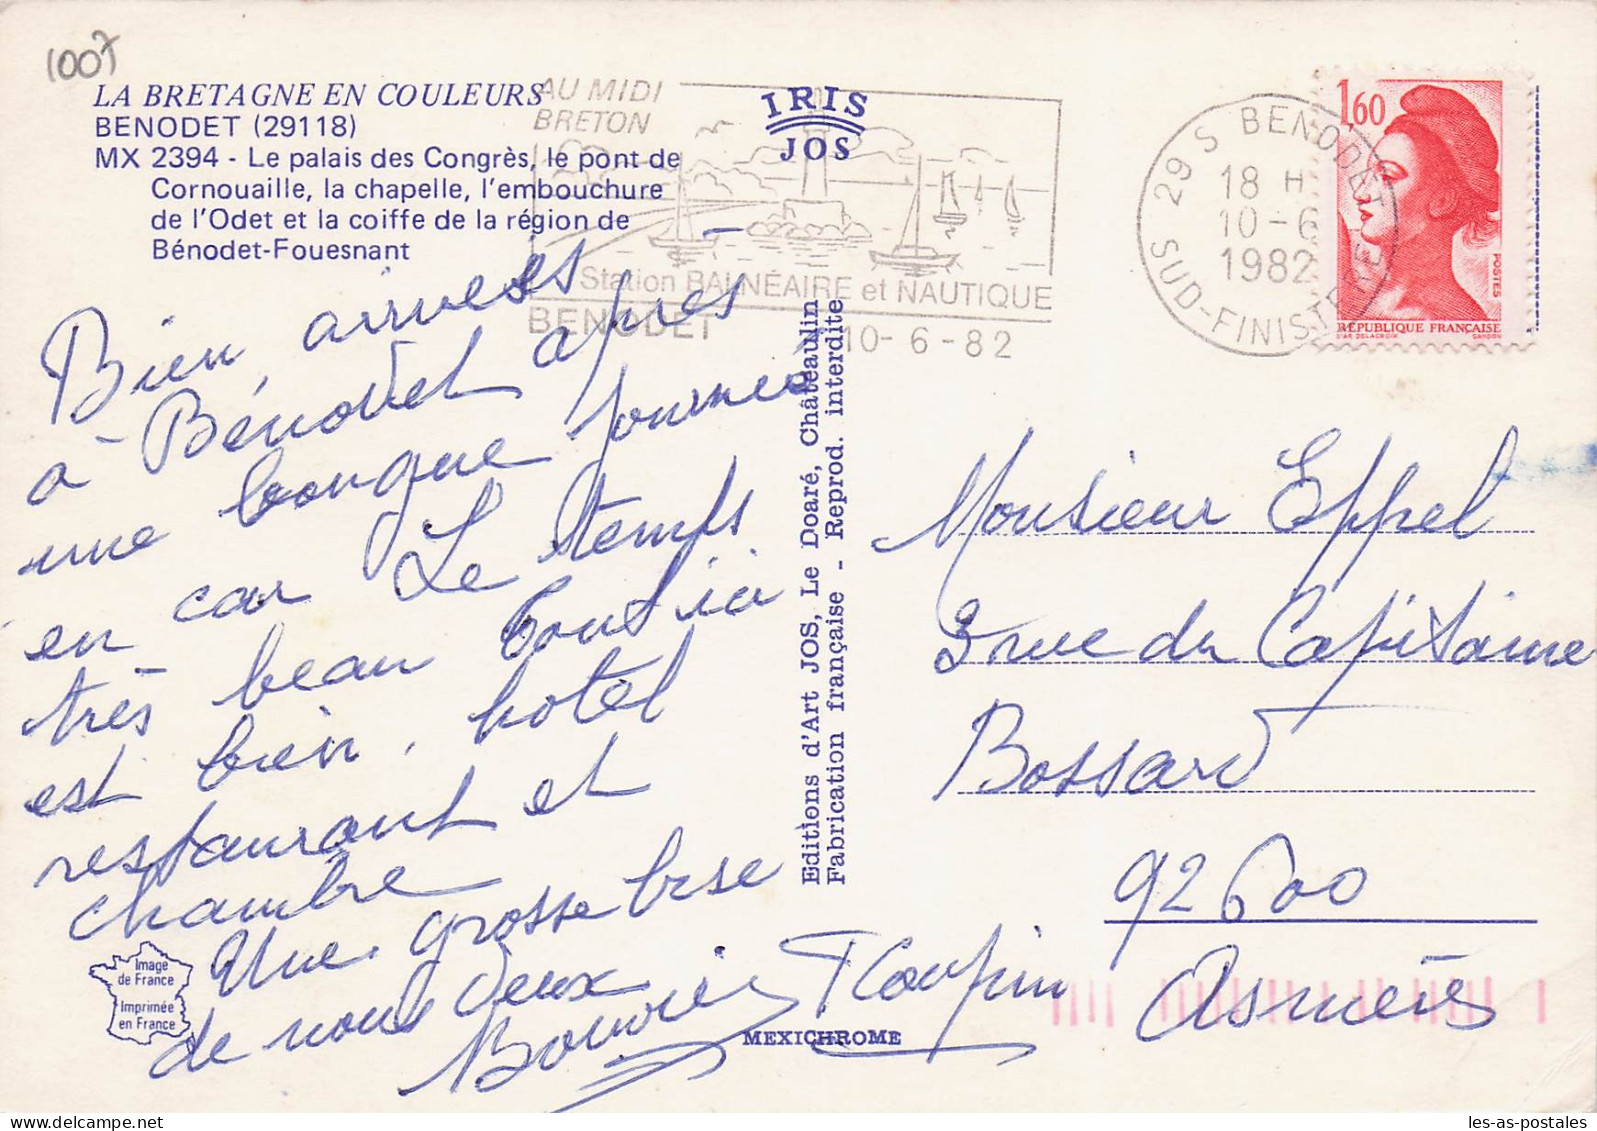 1007
LA BRETAGNE EN COULEURS
BENODET (29118)
MX 2394 - Le palais des Congrès, le pont de
Cornouaille, la chapelle, l'embouchure
de l'Odet et la coiffe de la région de
Bénodet-Fouesnant
AU MIDI
BRETON
Station BALNÉAIRE et NAUTIQUE
BENODET 10-6-82
IRIS
JOS
29 S BENODET
18 H
10-6
1982
SUD-FINISTERE
1,60
POSTES
RÉPUBLIQUE FRANÇAISE
D'AP. DELACROIX GANDON
Bien arrivés
à Bénodet après
une longue journée
en car Le temps
très beau tout ici
est bien, hotel
restaurant et
chambre
Une grosse bise
de nous deux
Editions d'Art JOS, Le Doaré, Châteaulin
Fabrication française - Reprod. interdite
Monsieur Eppel
3 rue du Capitaine
Bossard
92600
Asnières
Image
de France
Imprimée
en France
MEXICHROME
les-as-postales